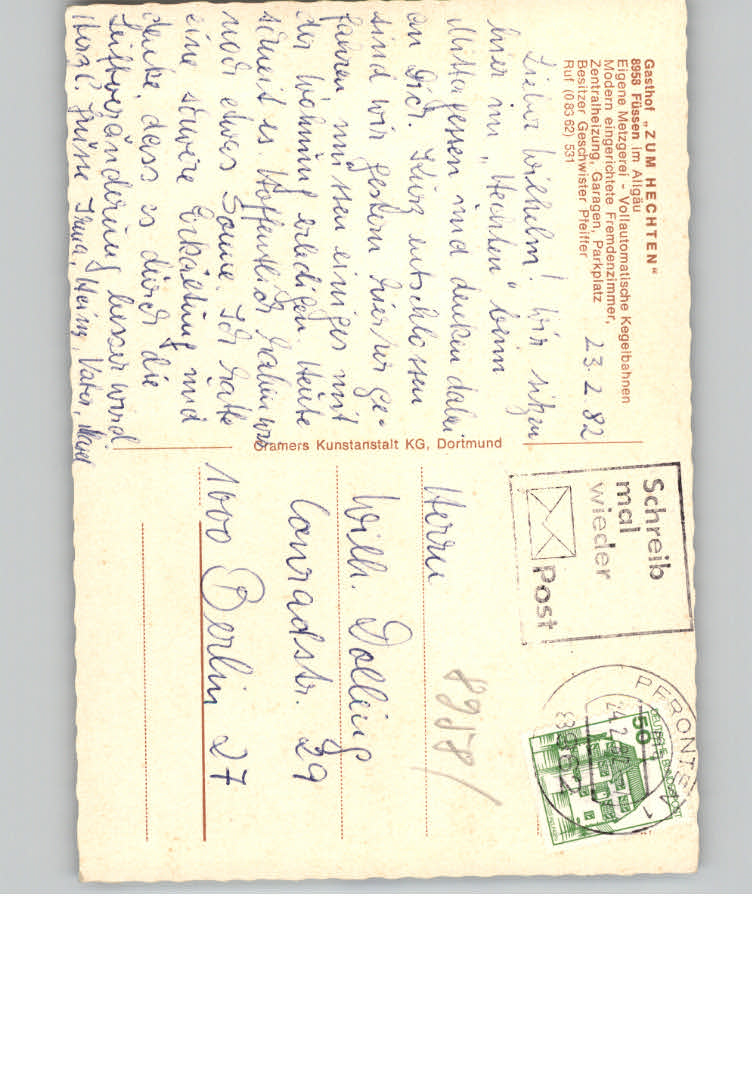 Gasthof „ZUM HECHTEN“
8958 Füssen im Allgäu
Eigene Metzgerei - Vollautomatische Kegelbahnen
Modern eingerichtete Fremdenzimmer,
Zentralheizung, Garagen, Parkplatz
Besitzer Geschwister Pfeiffer
Ruf (0 83 62) 531
23.2.82
Lieber Wilhelm! Wir sitzen
hier im „Hechten" beim
Mittagessen und denken dabei
an Dich. Kurz entschlossen
sind wir gestern hierher ge-
fahren, mussten einiges mit
der Wohnung erledigen. Heute
schneit es. Hoffentlich haben wir
noch etwas Sonne. Ich hatte
eine schwere Erkältung und
denke, dass es durch die
Luftveränderung besser wird.
Herzl. Grüsse Heinz, Vater,
Cramers Kunstanstalt KG, Dortmund
Schreib
mal
wieder
Post
PFRONTEN 1
24.2.82
8962
50
DEUTSCHE BUNDESPOST
8958/
Herrn
Wilh. Dolling
Conradstr. 29
1000 Berlin 27